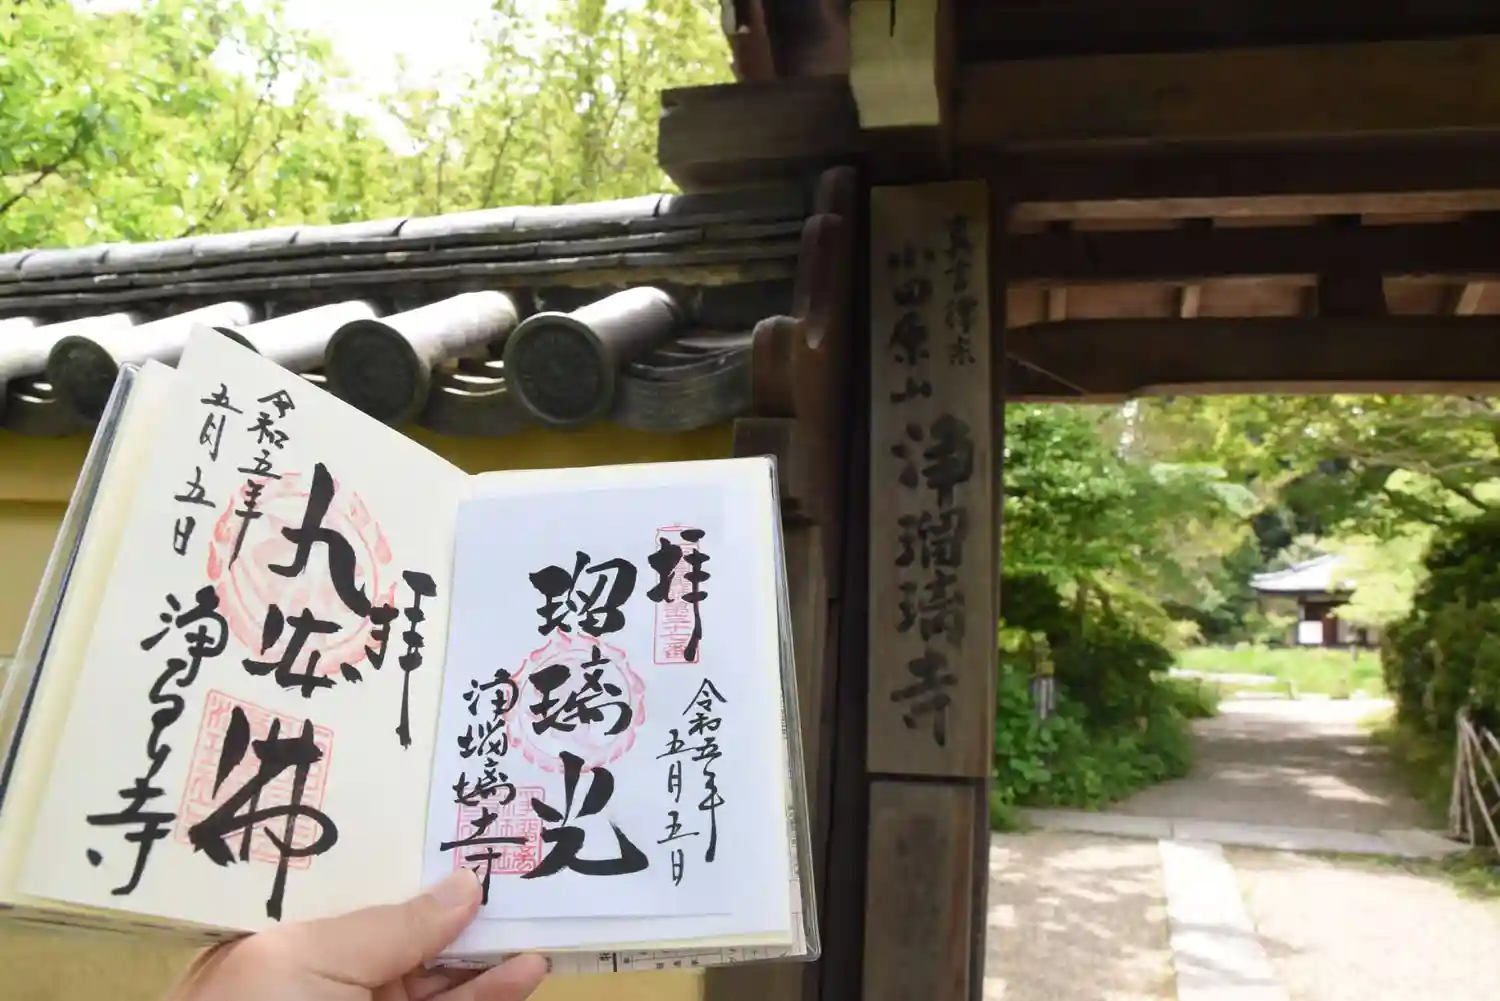 真言律宗
小田原山 浄瑠璃寺
拝
令和五年
五月五日
瑠璃光
浄瑠璃寺
拝
九体佛
令和五年
五月五日
浄るり寺